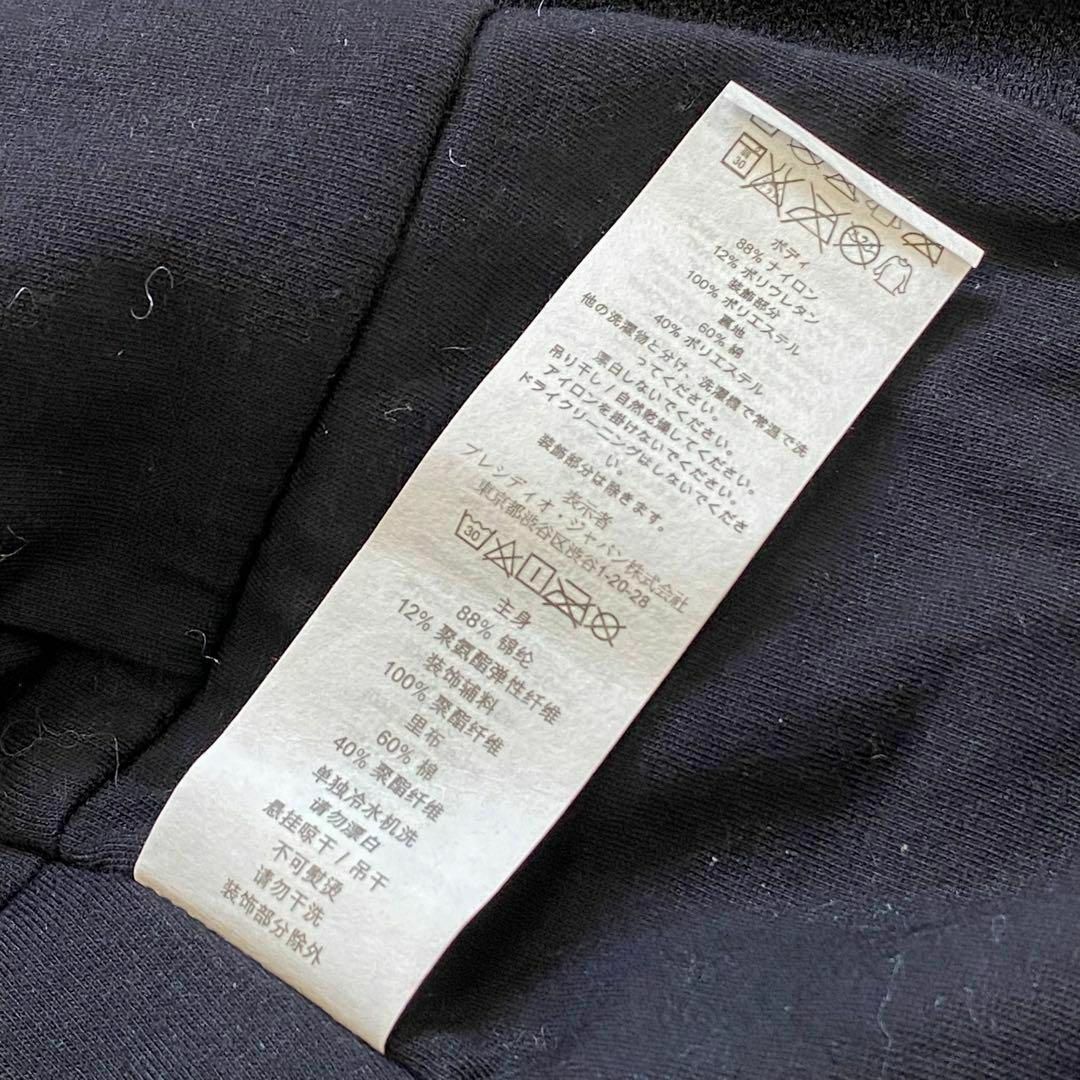 ボディ
88% ナイロン
12% ポリウレタン
装飾部分
100% ポリエステル
裏地
60% 綿
40% ポリエステル
他の洗濯物と分け、洗濯機で常温で洗
ってください。
漂白しないでください。
吊り干し / 自然乾燥してください。
アイロンを掛けないでください。
ドライクリーニングはしないでくださ
い。
装飾部分は除きます。
表示者
プレシディオ・ジャパン株式会社
東京都渋谷区渋谷1-20-28
30
主身
88% 锦纶
12% 聚氨酯弹性纤维
装饰辅料
100% 聚酯纤维
里布
60% 棉
40% 聚酯纤维
单独冷水机洗
请勿漂白
悬挂晾干 / 吊干
不可熨烫
请勿干洗
装饰部分除外